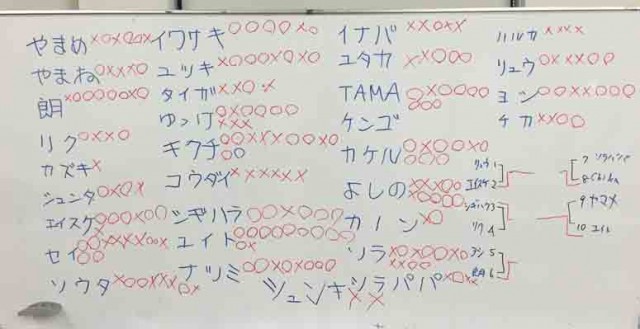 やまめ×○×○○×
やまね○××××○
朗×○○○○×○
リク○××○
カズキ×
シュンタ○×○×
エイスケ○○○×○○
セイ○○××××○○×
ソウタ×○○×××○×
イワサキ○○○○×○
ユヅキ×○○○×○×○
タイガ××○×
ゆっけ○×○○○○
×××
キクチ○○×××○○×○
○○
コウダイ××××××
シギハラ○○×○○○
ユイト○○○○○○○
○×
ナツミ○○×○×○○○
シュンキ
××
イナバ××○××
ユタカ××○○○
TAMA○×○○○○
○○○
ケンゴ
カケル○×○○×○
○○○○
よしの○××○○
×○○○○
カノン×○
ソラ×○×○○×○
××○○
ソラパパ×○××
ハルカ××××
リュウ○×××○○
ヨン○○××○○○
チカ××○○
エイスケ2
リク4
7 ソラパパ
8 Chika
9 ヤマメ
10 ユイト